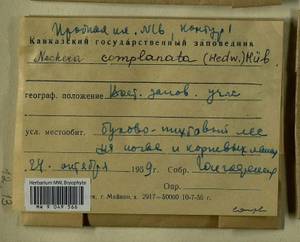 Пробная пл. №16, контур 1
Кавказский государственный заповедник
Neckera complanata (Hedw.) Hüb.
географ. положение Вост. запов. уч-ка
усл. местообит. Буково-пихтовый лес
на почве и корневых лапах
24 октября 1959 г. Собр.
Опр.
г. Майкоп, х. 2917—50000 10-7-56 г.
Herbarium MW, Bryophyte
MW 9 049 566